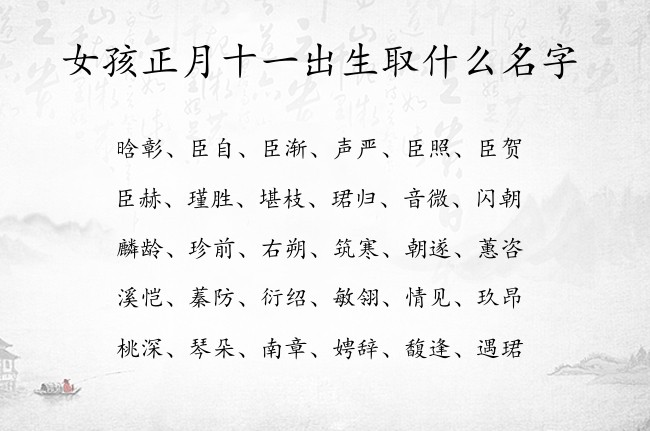 女孩正月十一出生取什么名字
晗彰、臣自、臣渐、声严、臣照、臣贺
臣赫、瑾胜、堪枝、珺归、音微、闪朝
麟龄、珍前、右朔、筑寒、朝遂、蕙咨
溪恺、蓁防、衍绍、敏翎、情见、玖昂
桃深、琴朵、南章、娉辞、馥逢、遇珺